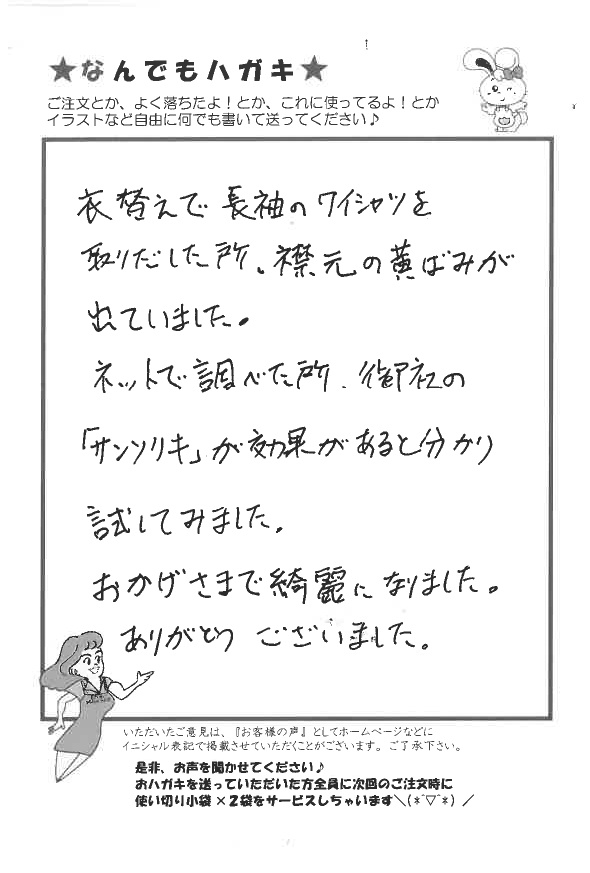 ★なんでもハガキ★
ご注文とか、よく落ちたよ！とか、これに使ってるよ！とか
イラストなど自由に何でも書いて送ってください♪
衣替えで長袖のワイシャツを
取りだした所、襟元の黄ばみが
出ていました。
ネットで調べた所、御社の
「サンソリキ」が効果があると分かり
試してみました。
おかげさまで綺麗になりました。
ありがとうございました。
いただいたご意見は、『お客様の声』としてホームページなどに
イニシャル表記で掲載させていただくことがございます。ご了承下さい。
是非、お声を聞かせてください♪
おハガキを送っていただいた方全員に次回のご注文時に
使い切り小袋×2袋をサービスしちゃいます＼(*ˆ▽ˆ*)／